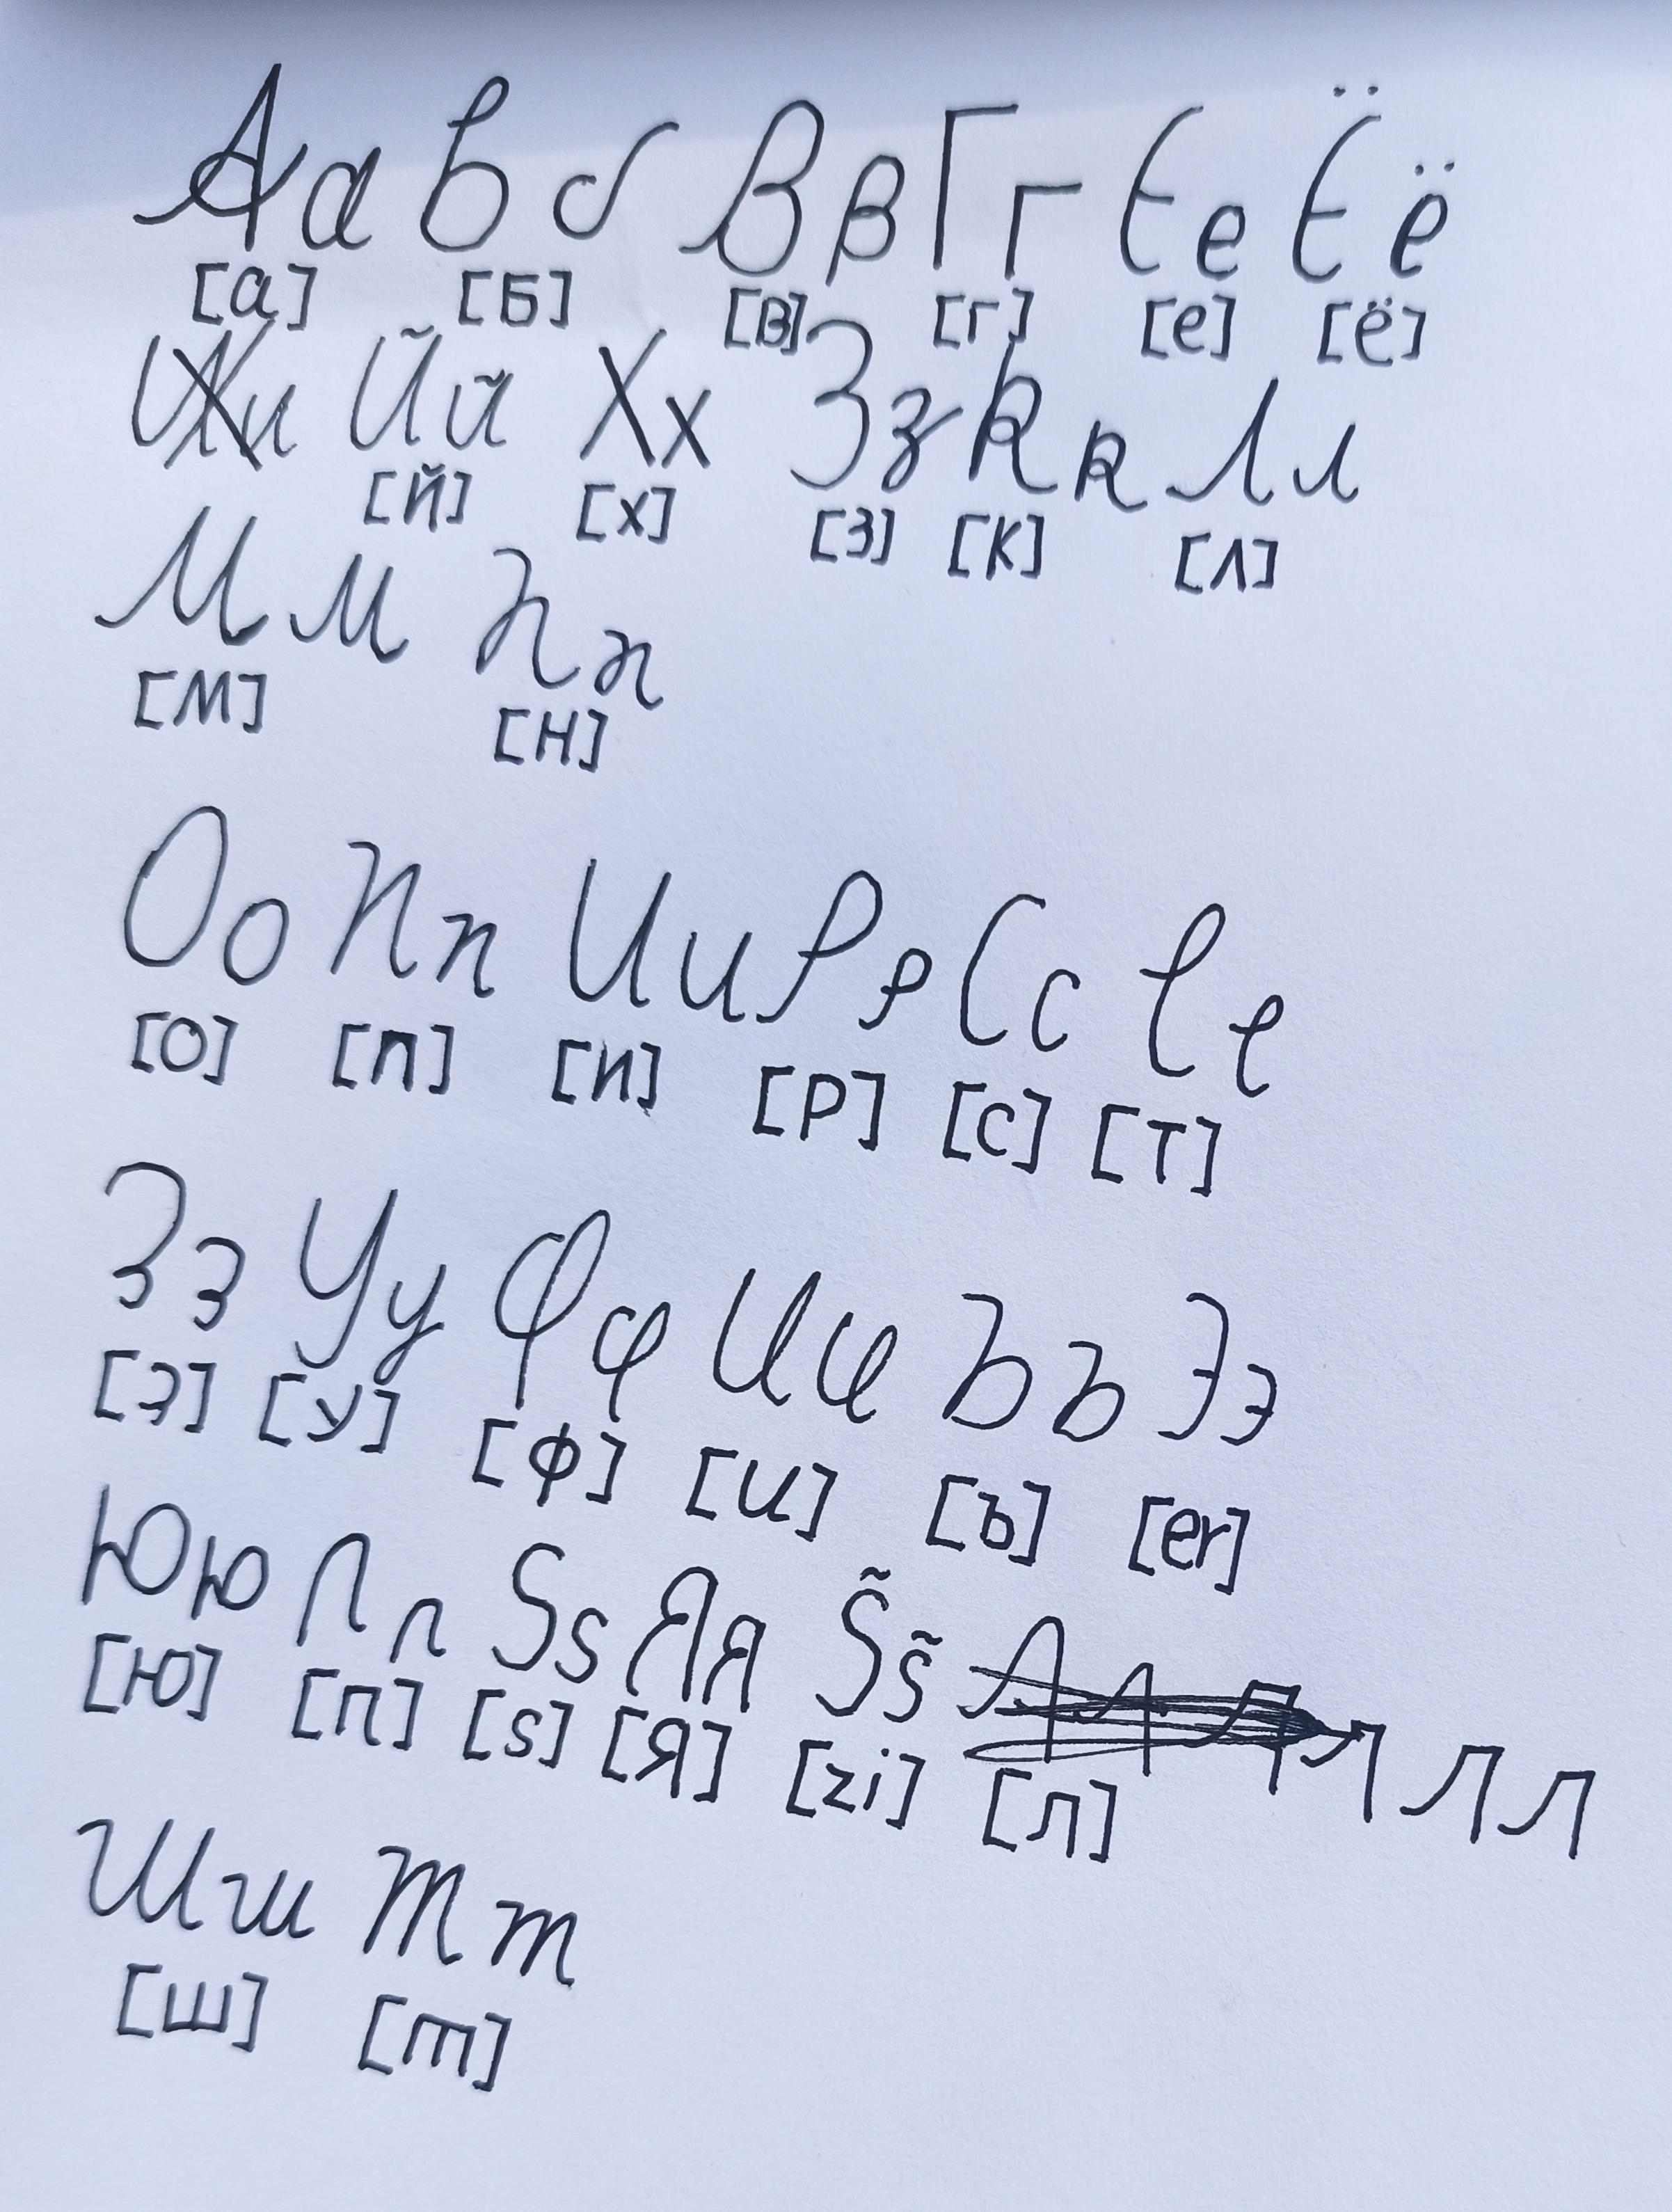 Аа Бб Вв Гг Ее Ёё
[а] [Б] [В] [г] [е] [ё]
Йй Хх Зз Кк Лл
[Й] [х] [З] [К] [Л]
Мм Nn
[М] [Н]
Оо Пп Ии Рр Сс
[О] [п] [И] [Р] [С] [Т]
Зз Уу Фф Ъъ Ээ
[Э] [У] [ф] [U] [ъ] [er]
Юю Пп Ss Яя S̃s̃ Лл
[Ю] [П] [s] [Я] [zi] [Л]
Шш Тт
[Ш] [т]